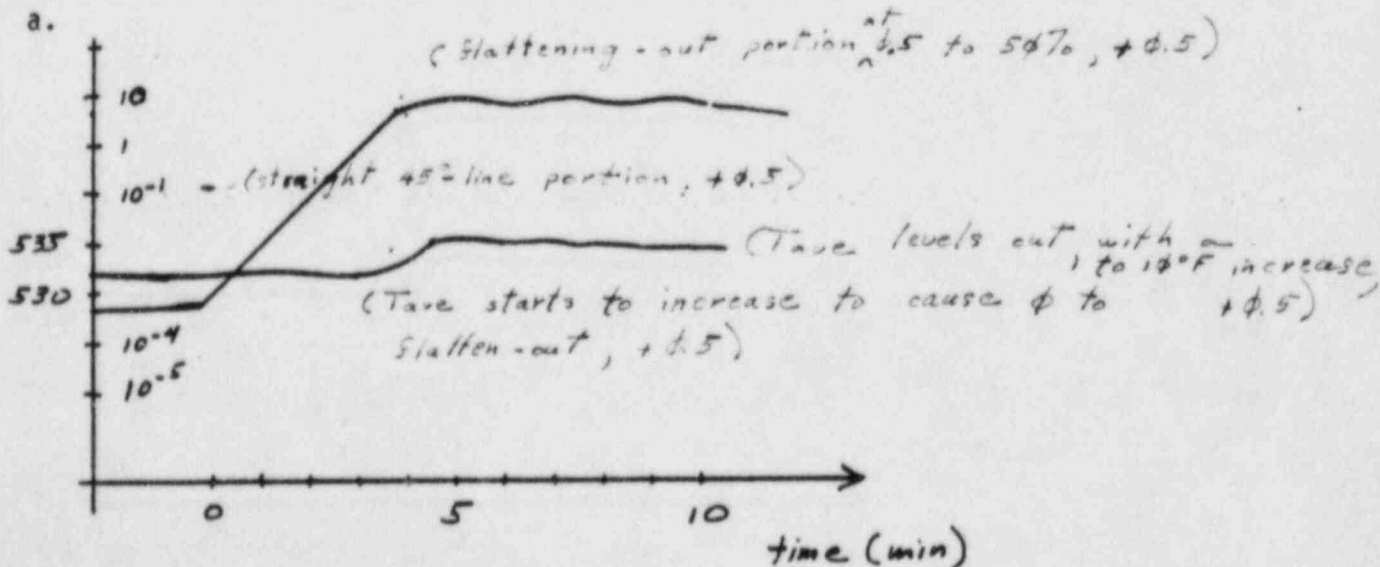 a.
(flattening-out portion at φ.5 to 5φ%, +φ.5)
10
1
10⁻¹ (straight 45° line portion, +φ.5)
535 (Tave levels out with a 1 to 1φ°F increase, +φ.5)
530 (Tave starts to increase to cause φ to flatten-out, +φ.5)
10⁻⁴
10⁻⁵
0 5 10
time (min)